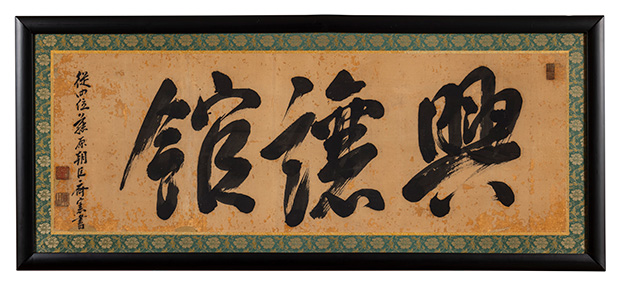 興讓館
從四位藤原朝臣齊憲書